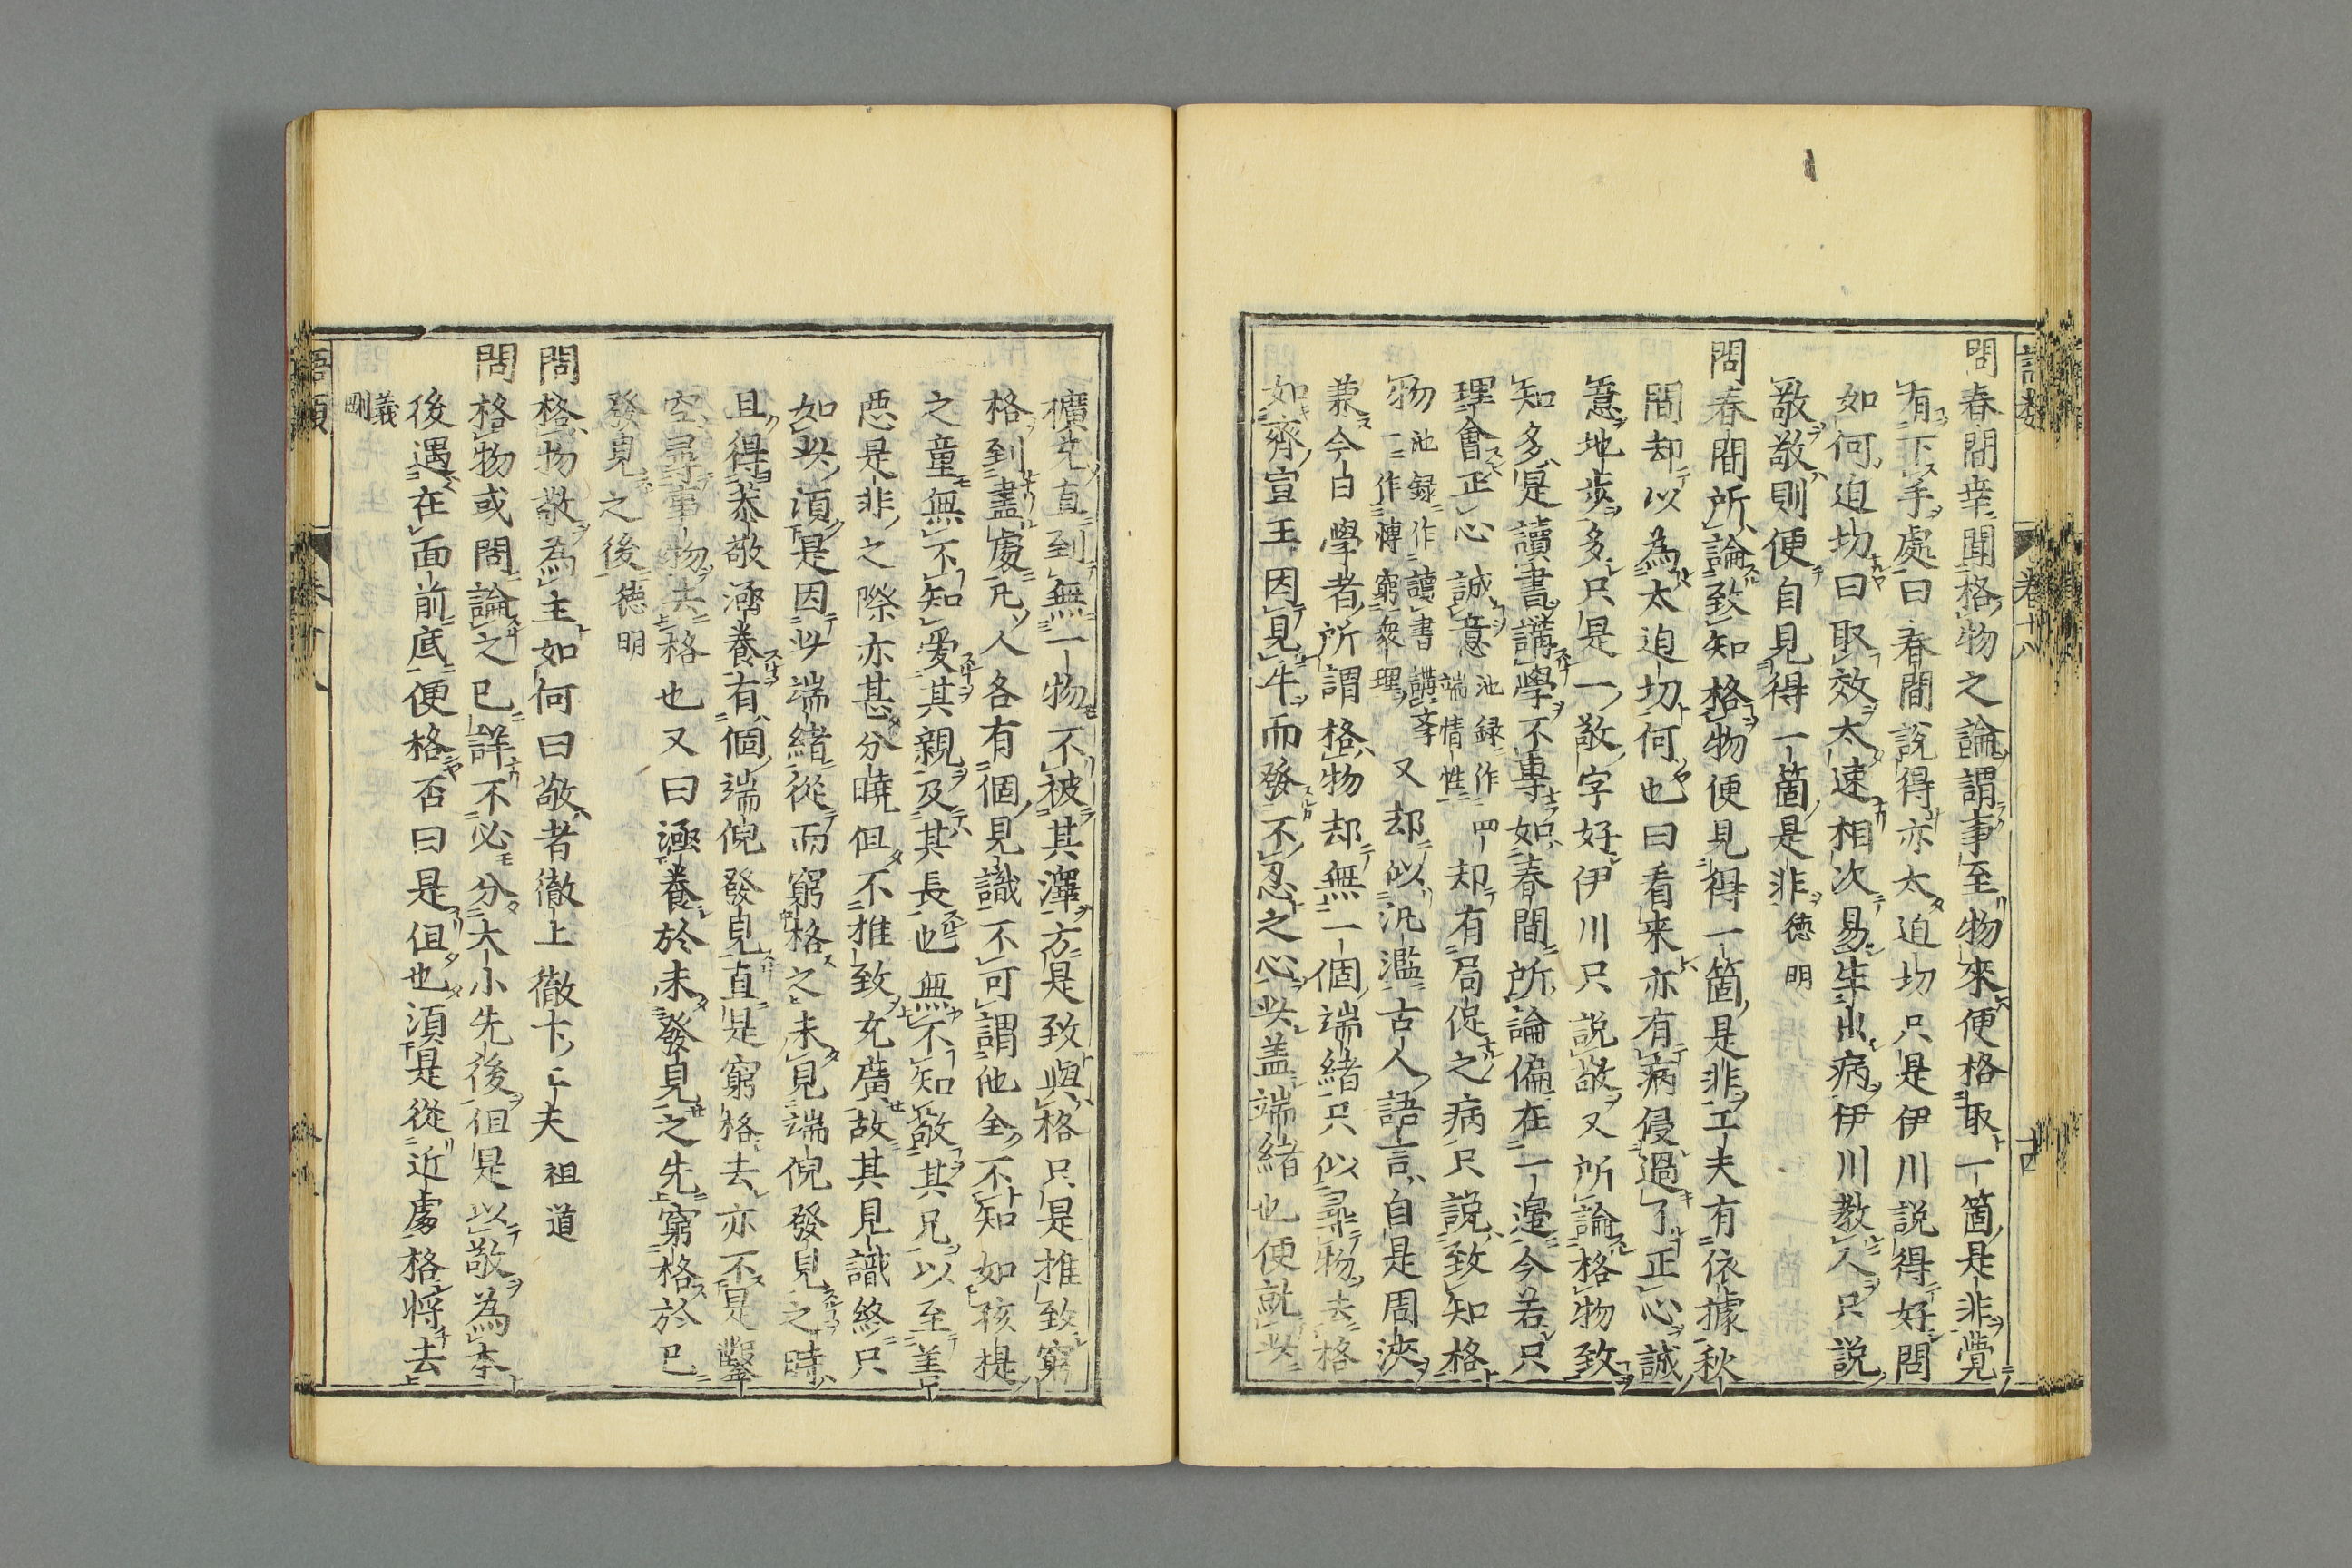 問春間幸聞格物之論謂事至物來便格取一箇是非覺
有下手處曰春間說得亦太迫切只是伊川説得好問
如何迫切曰取效太速相次易生出病伊川教人只説
敬敬則便自見得一箇是非德明
問春間所論致知格物便見得一箇是非工夫有依據秋
間却以為太迫切何也曰看来亦有病侵過了正心誠
意地步多只是一敬字好伊川只説敬又所論格物致
知多是讀書講學不專如春間所論偏在一邊今若只
理會正心誠意池録作四端情性却有局促之病只説致知格
物池録作讀書講斈一作博窮衆理又却似汎濫古人語言自是周浹
兼今白學者所謂格物却無一個端緒只似尋物去格
如齊宣王因見牛而發不忍之心此盖端緒也便就此
擴充直到無一物不被其澤方是致與格只是推致窮
格到盡處凡人各有個見識不可謂他全不知如孩提
之童無不知愛其親及其長也無不知敬其兄以至善
惡是非之際亦甚分曉但不推致充廣故其見識終只
如此須是因此端緒從而窮格之未見端倪發見之時
且得恭敬涵養有個端倪發見直是窮格去亦不是鑿
空尋事物去格也又曰涵養於未發見之先窮格於已
發見之後德明
問格物敬為主如何曰敬者徹上徹下工夫祖道
問格物或問論之已詳不必分大小先後但是以敬為本
後遇在面前底便格否曰是但也須是從近處格將去
義剛
語類 卷十八
語類 卷十八 十四